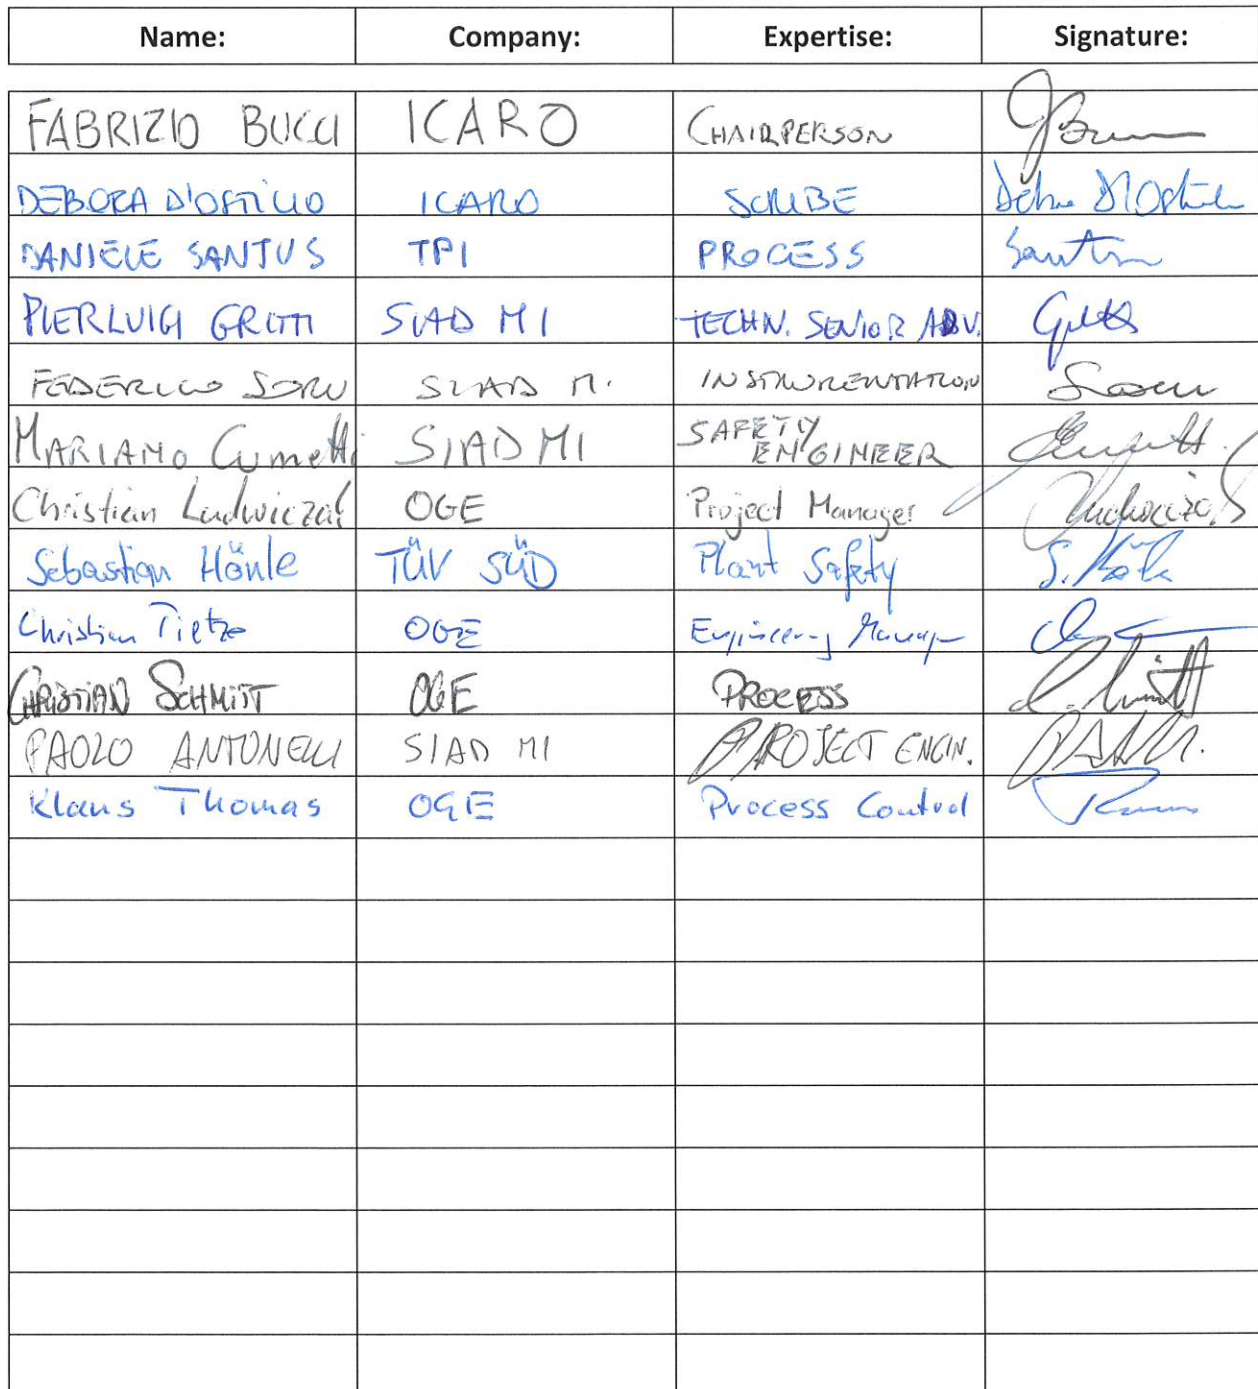 Name: Company: Expertise: Signature:
FABRIZIO BUCCI ICARO CHAIRPERSON
DEBORA D'OSTILIO ICARO SCRIBE
DANIELE SANTUS TPI PROCESS
PIERLUIGI GRITTI SIAD MI TECHN. SENIOR ADV.
FEDERICO SORU SIAD M. INSTRUMENTATION
MARIANO Cumetti SIAD MI SAFETY
ENGINEER
Christian Ludwiczak OGE Project Manager
Sebastian Hönle TÜV SÜD Plant Safety
Christian Tietze OGE Engineering Manager
CHRISTIAN SCHMITT OGE PROCESS
PAOLO ANTONELLI SIAD MI PROJECT ENGIN.
Klaus Thomas OGE Process Control